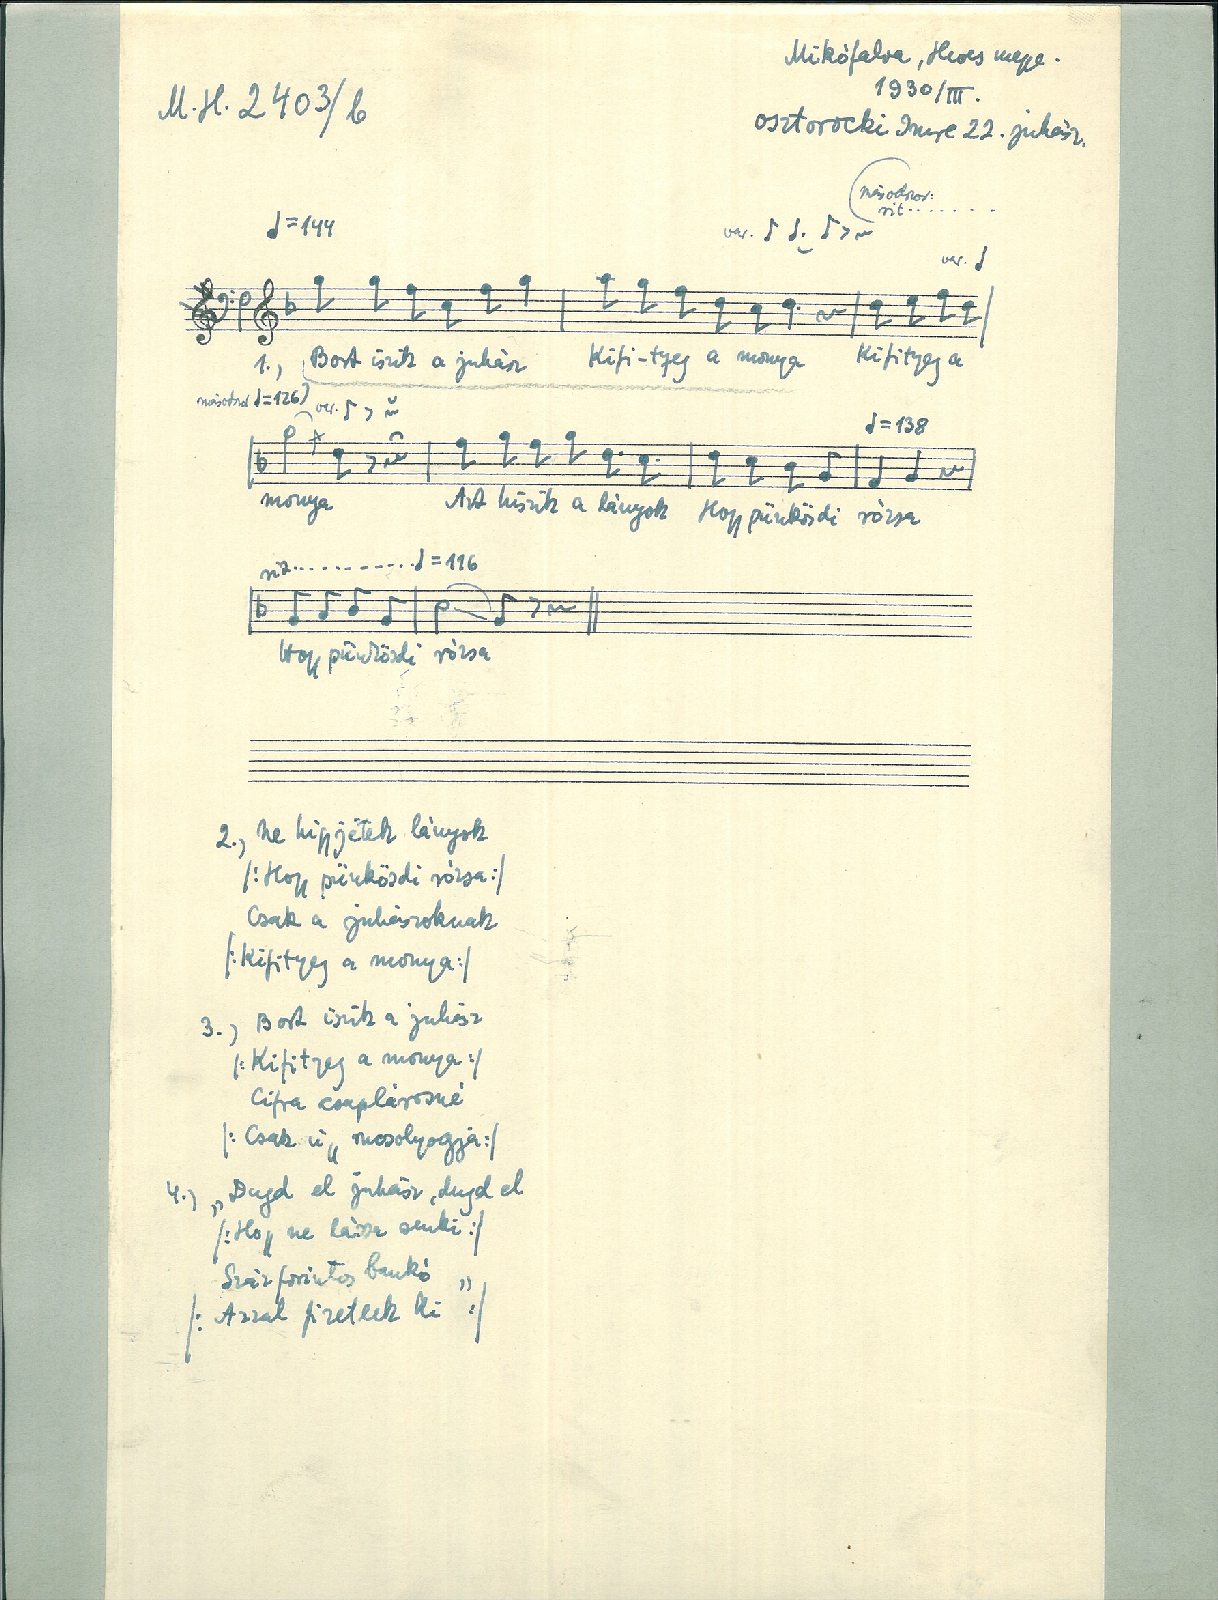 Mikófalva, Heves megye.
M.H. 2403/b
1930/III.
Osztorocki Imre 22. juhász.
másodszor:
rit.......
♩=144
var.
var.
1., Bort iszik a juhász Kifi-tyeg a monya Kifityeg a
másodszor ♩=126)
var.
♩=138
monya Azt hiszik a lányok Hogy pünkösdi rózsa
rit..........♩=116
Hogy pünkösdi rózsa
2., Ne higgyétek lányok
/:Hogy pünkösdi rózsa:/
Csak a juhászoknak
/:Kifityeg a monya:/
3., Bort iszik a juhász
/:Kifityeg a monya:/
Cifra csaplárosné
/: Csak úgy mosolyogja:/
4., „Dugd el juhász, dugd el
/:Hogy ne lássa senki:/
Száz forintos bankó
/: Azzal fizetlek ki ":/